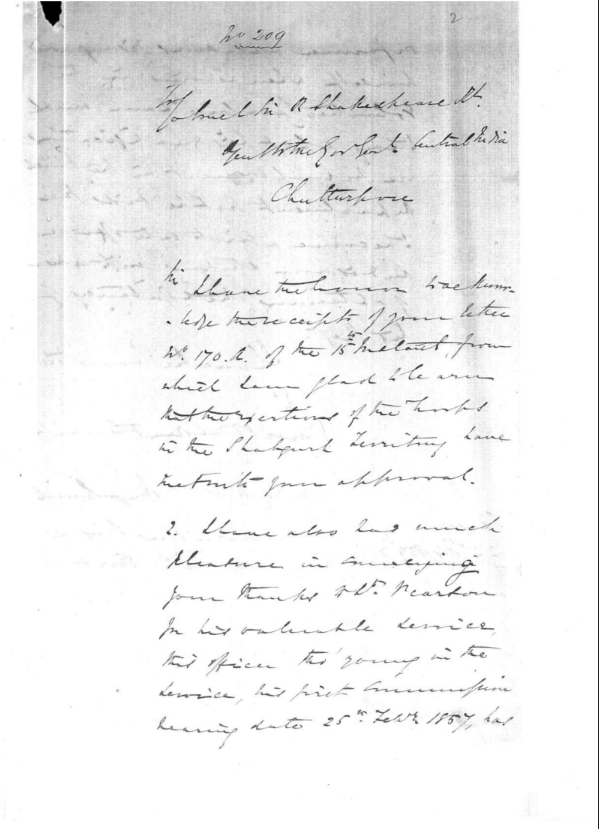 2
No 209
To
Colonel Sir R Shakespeare Kt.
Agent to the Gov Genl Central India
Chutterpore
Sir I have the honor to acknow-
-ledge the receipt of your letter
No. 170.A. of the 15th Instant, from
which I am glad to learn
that the exertions of the troops
in the Shahgurh Territory have
met with your approval.
2. I have also had much
pleasure in conveying
your thanks to Lt. Pearson
for his valuable service,
this officer tho' young in the
service, his first Commission
bearing date 25th Feby. 1857, has